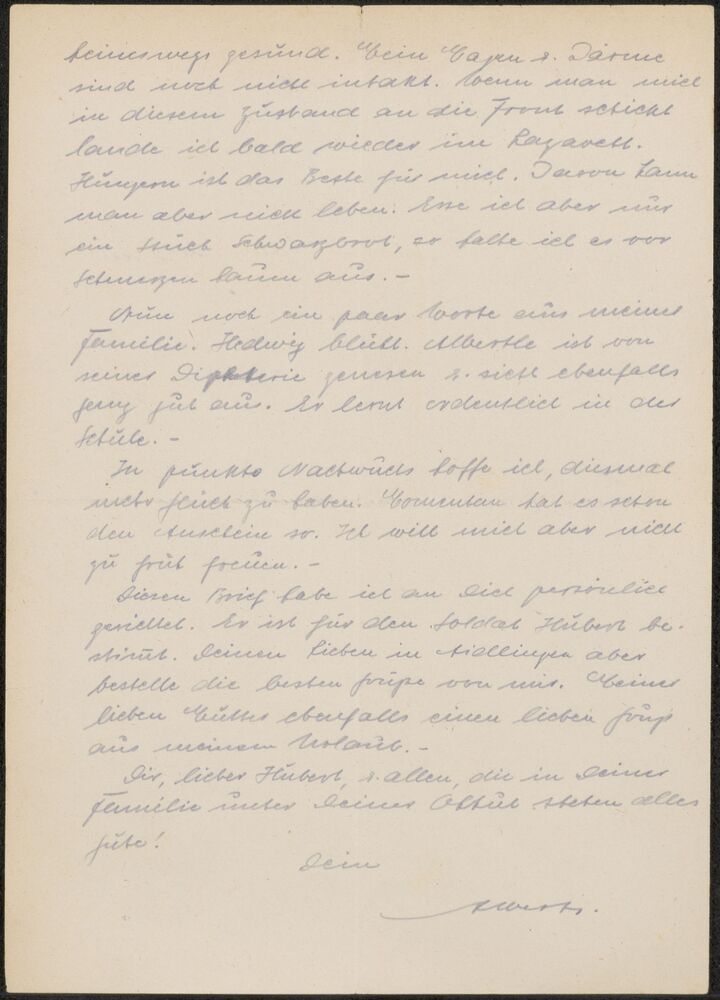 keineswegs gesund. Mein Magen u. Därme
sind noch nicht intakt. Wenn man mich
in diesem Zustand an die Front schickt
lande ich bald wieder im Lazarett.
Hungern ist das Beste für mich. Davon kann
man aber nicht leben. Esse ich aber nur
ein Stück Schwarzbrot, so halte ich es vor
Schmerzen kaum aus. –
Nun noch ein paar Worte aus meiner
Familie. Hedwig blüht. Albertle ist von
seiner Diphterie genesen u. sieht ebenfalls
ganz gut aus. Er lernt ordentlich in der
Schule. –
In punkto Nachwuchs hoffe ich, diesmal
mehr Glück zu haben. Momentan hat es schon
den Anschein so. Ich will mich aber nicht
zu früh freuen. –
Diesen Brief habe ich an Dich persönlich
gerichtet. Er ist für den Soldat Hubert be-
stimmt. Deinen Lieben in Aidlingen aber
bestelle die besten Grüße von mir. Meiner
lieben Mutter ebenfalls einen lieben Gruß
aus meinem Urlaub. –
Dir, lieber Hubert, u. allen, die in Deiner
Familie unter Deiner Obhut stehen alles
Gute!
Dein
Albert.